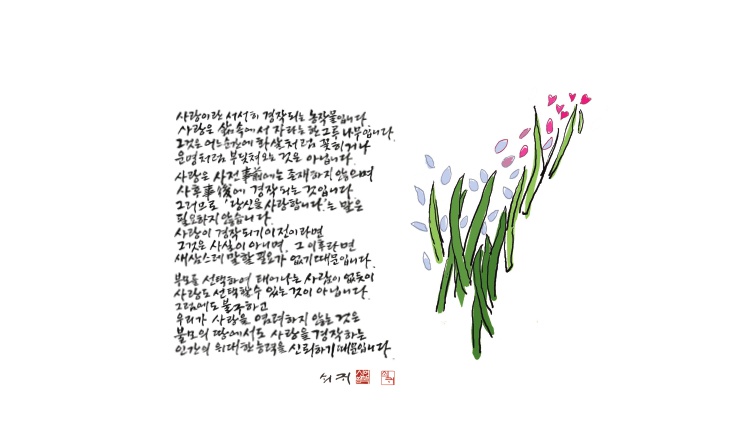 사랑이란 서서히 경작되는 농작물입니다.
사랑은 삶 속에서 자라는 한 그루 나무입니다.
그것은 어느 순간에 화살처럼 꽂히거나
운명처럼 부딪쳐오는 것은 아닙니다.
사랑은 사전事前에는 존재하지 않으며
사후事後에 경작되는 것입니다.
그러므로 '당신을 사랑합니다'는 말은
필요하지 않습니다.
사랑이 경작되기 이전이라면
그것은 사실이 아니며, 그 이후라면
새삼스레 말할 필요가 없기 때문입니다.
부모를 선택하여 태어나는 사람이 없듯이
사랑도 선택할 수 있는 것이 아닙니다.
그럼에도 불구하고
우리가 사랑을 염려하지 않는 것은
불모의 땅에서도 사랑을 경작하는
인간의 위대한 능력을 신뢰하기 때문입니다.
쇠귀